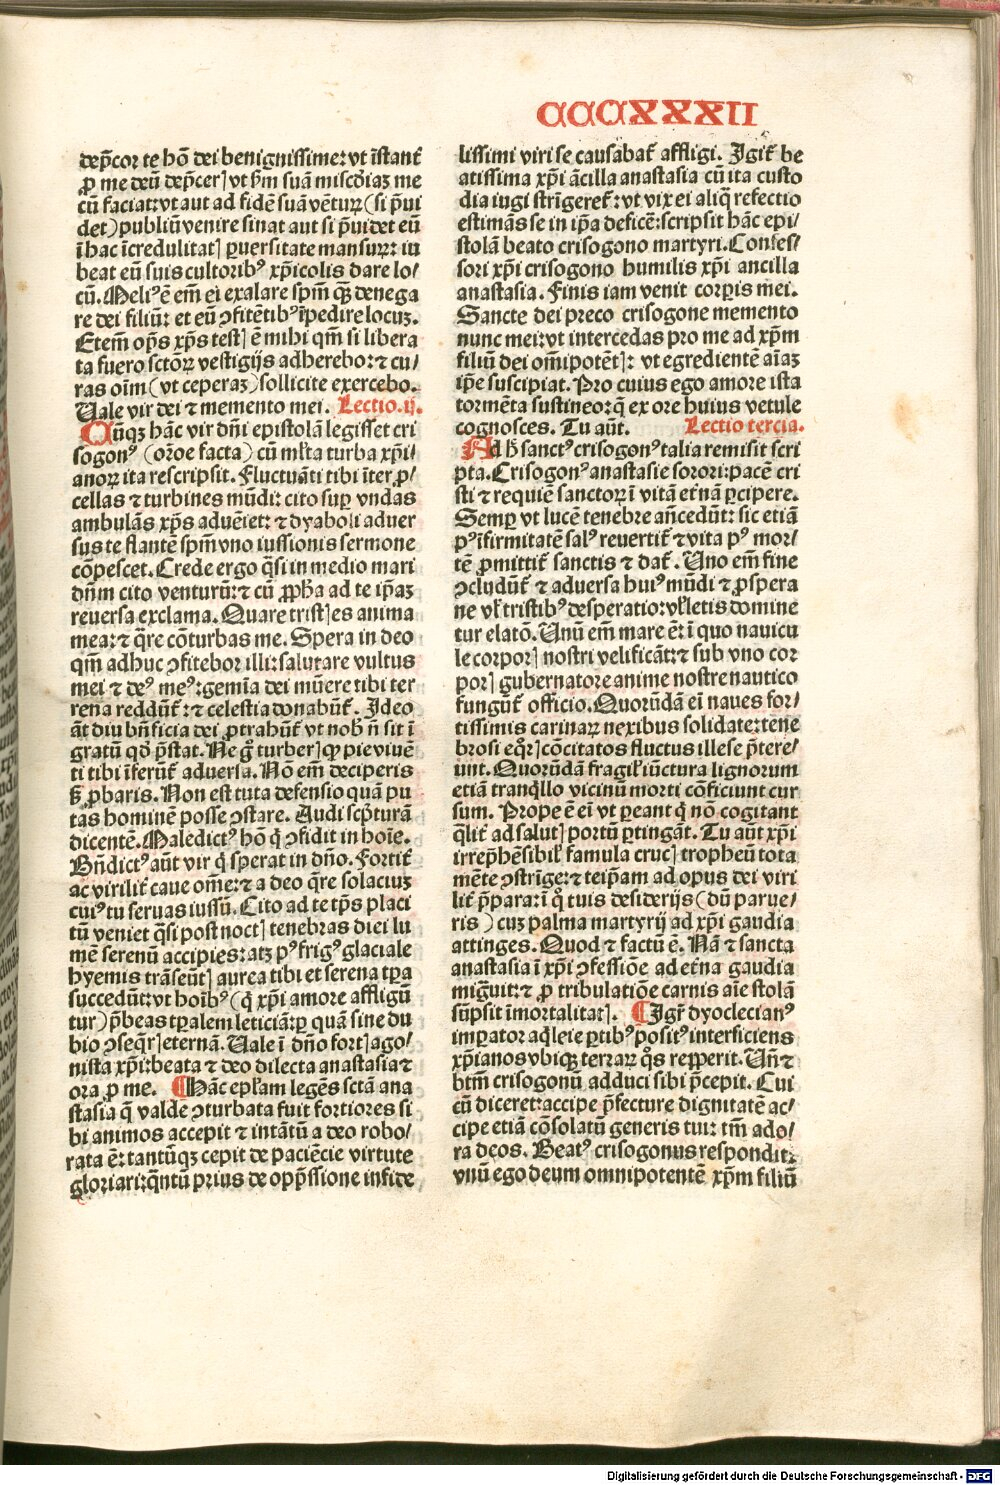 CCCXXXII
dep̄cor te hō dei benignissime: vt īstant᷑
ꝓ me deū dep̄cerꝭ vt h̄m suā miscdiaꝫ me
cū faciat: vt aut ad fidē suā vētuꝝ (si p̄ui
det) publiū venire sinat aut si p̄uidet eū
ī hac īcredulitatꝭ ꝑuersitate mansuꝝ: iu
beat eū suis cultoribꝰ xp̄icolis dare lo⸗
cū. Meliꝰ ē em̄ ei exalare sp̄m qꝫ denega
re dei filiū: et eū ꝯfitētibꝰ īpedire locuꝫ.
Etem̄ op̄s xp̄s testꝭ ē mihi qm̄ si libera
ta fuero sctōꝝ vestigijs adherebo: ⁊ cu⸗
ras oīm (vt ceperaꝫ) sollicite exercebo.
Uale vir dei ⁊ memento mei. Lectio .ij.
Cūqꝫ hāc vir dn̄i epistolā legisset cri
sogonꝰ (orōe facta) cū ml̄ta turba xp̄i⸗
anoꝝ ita rescripsit. Fluctuāti tibi īter ꝓ⸗
cellas ⁊ turbines mūdi: cito suꝑ vndas
ambulās xp̄s aduēiet: ⁊ dyaboli aduer
sus te flantē sp̄m vno iussionis sermone
cōpescet. Crede ergo q̄si in medio mari
dn̄m cito venturū: ⁊ cū ꝓph̄a ad te ip̄aꝫ
reuersa exclama. Quare tristꝭ es anima
mea: ⁊ q̄re cōturbas me. Spera in deo
qm̄ adhuc ꝯfitebor illi: salutare vultus
mei ⁊ deꝰ meꝰ: gemīa dei mūere tibi ter
rena reddūt᷑: ⁊ celestia donabūt᷑. Ideo
āt diu bn̄ficia dei ꝓtrahūt᷑ vt nob̄ n̄ sit ī
gratū qd̄ p̄stat. Ne g̊ turberꝭ qꝫ pie viuē
ti tibi īferūt᷑ aduersa. Nō em̄ deciperis
sꝫ ꝓbaris. Non est tuta defensio quā pu
tas hominē posse ꝯstare. Audi sc̄pturā
dicentē. Maledictꝰ hō q̄ ꝯfidit in hoīe.
Bn̄dictꝰ aūt vir q̄ sperat in dn̄o. Fortit᷑
ac virilit᷑ caue om̄e: ⁊ a deo q̄re solaciuꝫ
cuiꝰ tu seruas iussū. Cito ad te tp̄s placi
tū veniet q̄si post noctꝭ tenebras diei lu
mē serenū accipies: atꝫ pꝰ frigꝰ glaciale
hyemis trāseūtꝭ aurea tibi et serena tp̄ra
succedūt: vt hoībꝰ (q̄ xp̄i amore affligū
tur) p̄beas tꝑalem leticiā: ꝑ quā sine du
bio ꝯseq̄rꝭ eternā. Uale ī dn̄o fortꝭ ago⸗
nista xp̄i: beata ⁊ deo dilecta anastasia ⁊
ora ꝓ me. ¶ Hāc epl̄am legēs sctā ana
stasia q̄ valde ꝯturbata fuit fortiores si
bi animos accepit ⁊ intātū a deo robo⸗
rata ē: tantūqꝫ cepit de paciēcie virtute
gloriari: q̄ntū prius de opp̄ssione infide
lissimi viri se causabat᷑ affligi. Igit᷑ be
atissima xp̄i ācilla anastasia cū ita custo
dia iugi strīgeret᷑: vt vix ei aliq̄ refectio
estimās se in ip̄a deficē: scripsit hāc epi⸗
stolā beato crisogono martyri. Confes⸗
sori xp̄i crisogono humilis xp̄i ancilla
anastasia. Finis iam venit corꝑis mei.
Sancte dei preco crisogone memento
nunc mei: vt intercedas pro me ad xp̄m
filiū dei om̄ipotētꝭ: vt egredientē aīaꝫ
ip̄e suscipiat. Pro cuius ego amore ista
tormēta sustineo: q̄ ex ore huius vetule
cognosces. Tu aūt. Lectio tercia.
Ad h̄ sanctꝰ crisogonꝰ talia remisit scri
pta. Crisogonꝰ anastasie sorori: pacē cri
sti ⁊ requiē sanctoꝝ ī vitā et̄nā ꝑcipere.
Semꝑ vt lucē tenebre an̄cedūt: sic etiā
pꝰ īfirmitatē salꝰ reuertit᷑ ⁊ vita pꝰ mor⸗
tē ꝓmittit᷑ sanctis ⁊ dat᷑. Uno em̄ fine
ꝯcludūt᷑ ⁊ aduersa huiꝰ mūdi ⁊ ꝓspera
ne vl̄ tristibꝰ desperatio: vl̄ letis domine
tur elatō. Unū em̄ mare ē: ī quo nauicu
le corporꝭ nostri velificāt: ⁊ sub vno cor
porꝭ gubernatore anime nostre nautico
fungūt᷑ officio. Quorūdā ei naues for⸗
tissimis carinaꝝ nexibus solidate: tene
brosi eq̄rꝭ cōcitatos fluctus illese p̄tere⸗
unt. Quorūdā fragil̄ iūctura lignorum
etiā tranq̄llo vicinū morti cōficiunt cur
sum. Prope ē ei vt ꝑeant q̄ nō cogitant
q̄lit᷑ ad salutꝭ portū ꝑtingāt. Tu aūt xp̄i
irrep̄hēsibil̄ famula crucꝭ tropheū tota
mēte ꝯstrīge: ⁊ teip̄am ad opus dei viri
lit᷑ p̄para: ī q̊ tuis desiderijs (dū parue⸗
ris) cuꝫ palma martyrij ad xp̄i gaudia
attinges. Quod ⁊ factū ē. Nā ⁊ sancta
anastasia ī xp̄i ꝯfessiōe ad et̄na gaudia
mig̊uit: ⁊ ꝓ tribulatiōe carnis aīe stolā
sūpsit īmortalitatꝭ. ¶ Igr᷑ dyoclecianꝰ
imꝑator aq̄leie ꝑtibꝰ positꝰ interficiens
xp̄ianos vbiqꝫ terraꝝ q̊s reꝑerit. Un̄ ⁊
btm̄ crisogonū adduci sibi p̄cepit. Cui
cū diceret: accipe p̄fecture dignitatē ac⸗
cipe etiā cōsolatū generis tui: tm̄ ado⸗
ra deos. Beatꝰ crisogonus respondit:
vnū ego deum omnipotentē xp̄m filiū
Digitalisierung gefördert durch die Deutsche Forschungsgemeinschaft - DFG